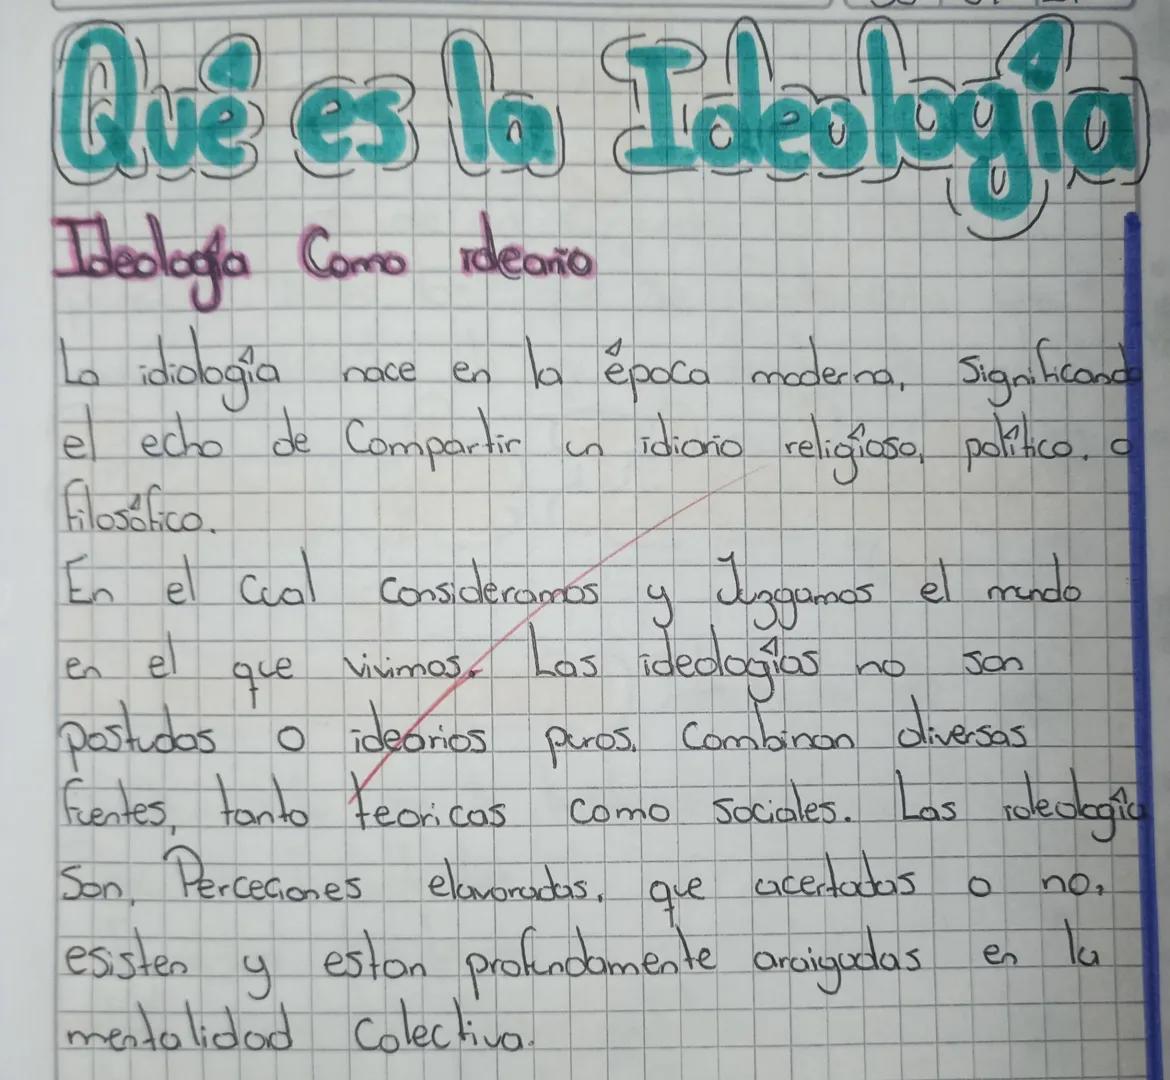 Qué es la Ideologia
Ideologia Como ideario
La idiología nace en la época moderna, Significando
el echo de Compartir un idiario religioso, político, o
filosófico.
En el cual consideramos y Juzgamos el mundo
en el que vivimos. Las ideologías no son
postudas o idearios puros, Combinan diversas
fuentes, tanto teoricas como sociales. Las ideología
Son, Perceciones elavoradas, que acertadas o no,
esisten y estan profundamente araigadas en la
mentalidad Colectiva.